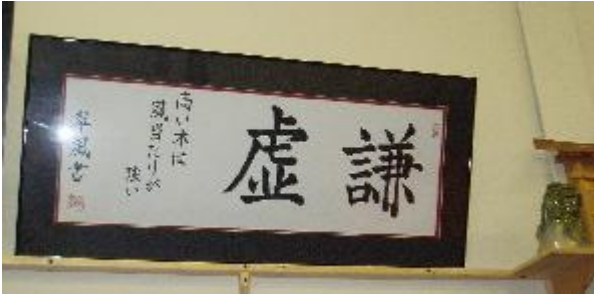 謙虚
高い木は
風当たりが
強い